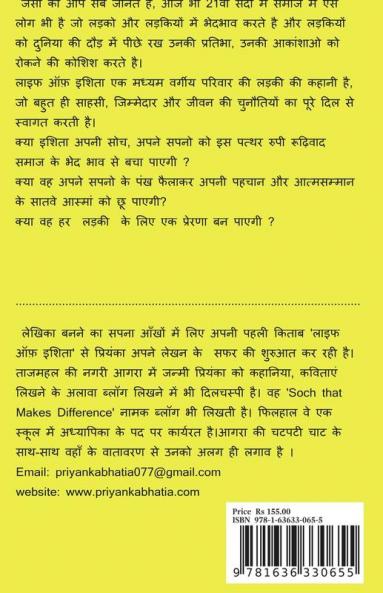 जैसा की आप सब जानते है, आज भी 21वी सदी में समाज में ऐसे
लोग भी है जो लड़को और लड़कियों में भेदभाव करते है और लड़कियों
को दुनिया की दौड़ में पीछे रख उनकी प्रतिभा, उनकी आकांशाओ को
रोकने की कोशिश करते है।
लाइफ ऑफ़ इशिता एक मध्यम वर्गीय परिवार की लड़की की कहानी है,
जो बहुत ही साहसी, जिम्मेदार और जीवन की चुनौतियों का पूरे दिल से
स्वागत करती है।
क्या इशिता अपनी सोच, अपने सपनो को इस पत्थर रुपी रूढ़िवाद
समाज के भेद भाव से बचा पाएगी ?
क्या वह अपने सपनो के पंख फैलाकर अपनी पहचान और आत्मसम्मान
के सातवे आस्मां को छू पाएगी?
क्या वह हर लड़की के लिए एक प्रेरणा बन पाएगी ?
लेखिका बनने का सपना आँखों में लिए अपनी पहली किताब 'लाइफ
ऑफ़ इशिता' से प्रियंका अपने लेखन के सफर की शुरुआत कर रही है।
ताजमहल की नगरी आगरा में जन्मी प्रियंका को कहानिया, कविताएं
लिखने के अलावा ब्लॉग लिखने में भी दिलचस्पी है। वह 'Soch that
Makes Difference' नामक ब्लॉग भी लिखती है। फिलहाल वे एक
स्कूल में अध्यापिका के पद पर कार्यरत है।आगरा की चटपटी चाट के
साथ-साथ वहाँ के वातावरण से उनको अलग ही लगाव है ।
Email: priyankabhatia077@gmail.com
website: www.priyankabhatia.com
Price Rs 155.00
ISBN 978-1-63633-065-5
9 781636 330655